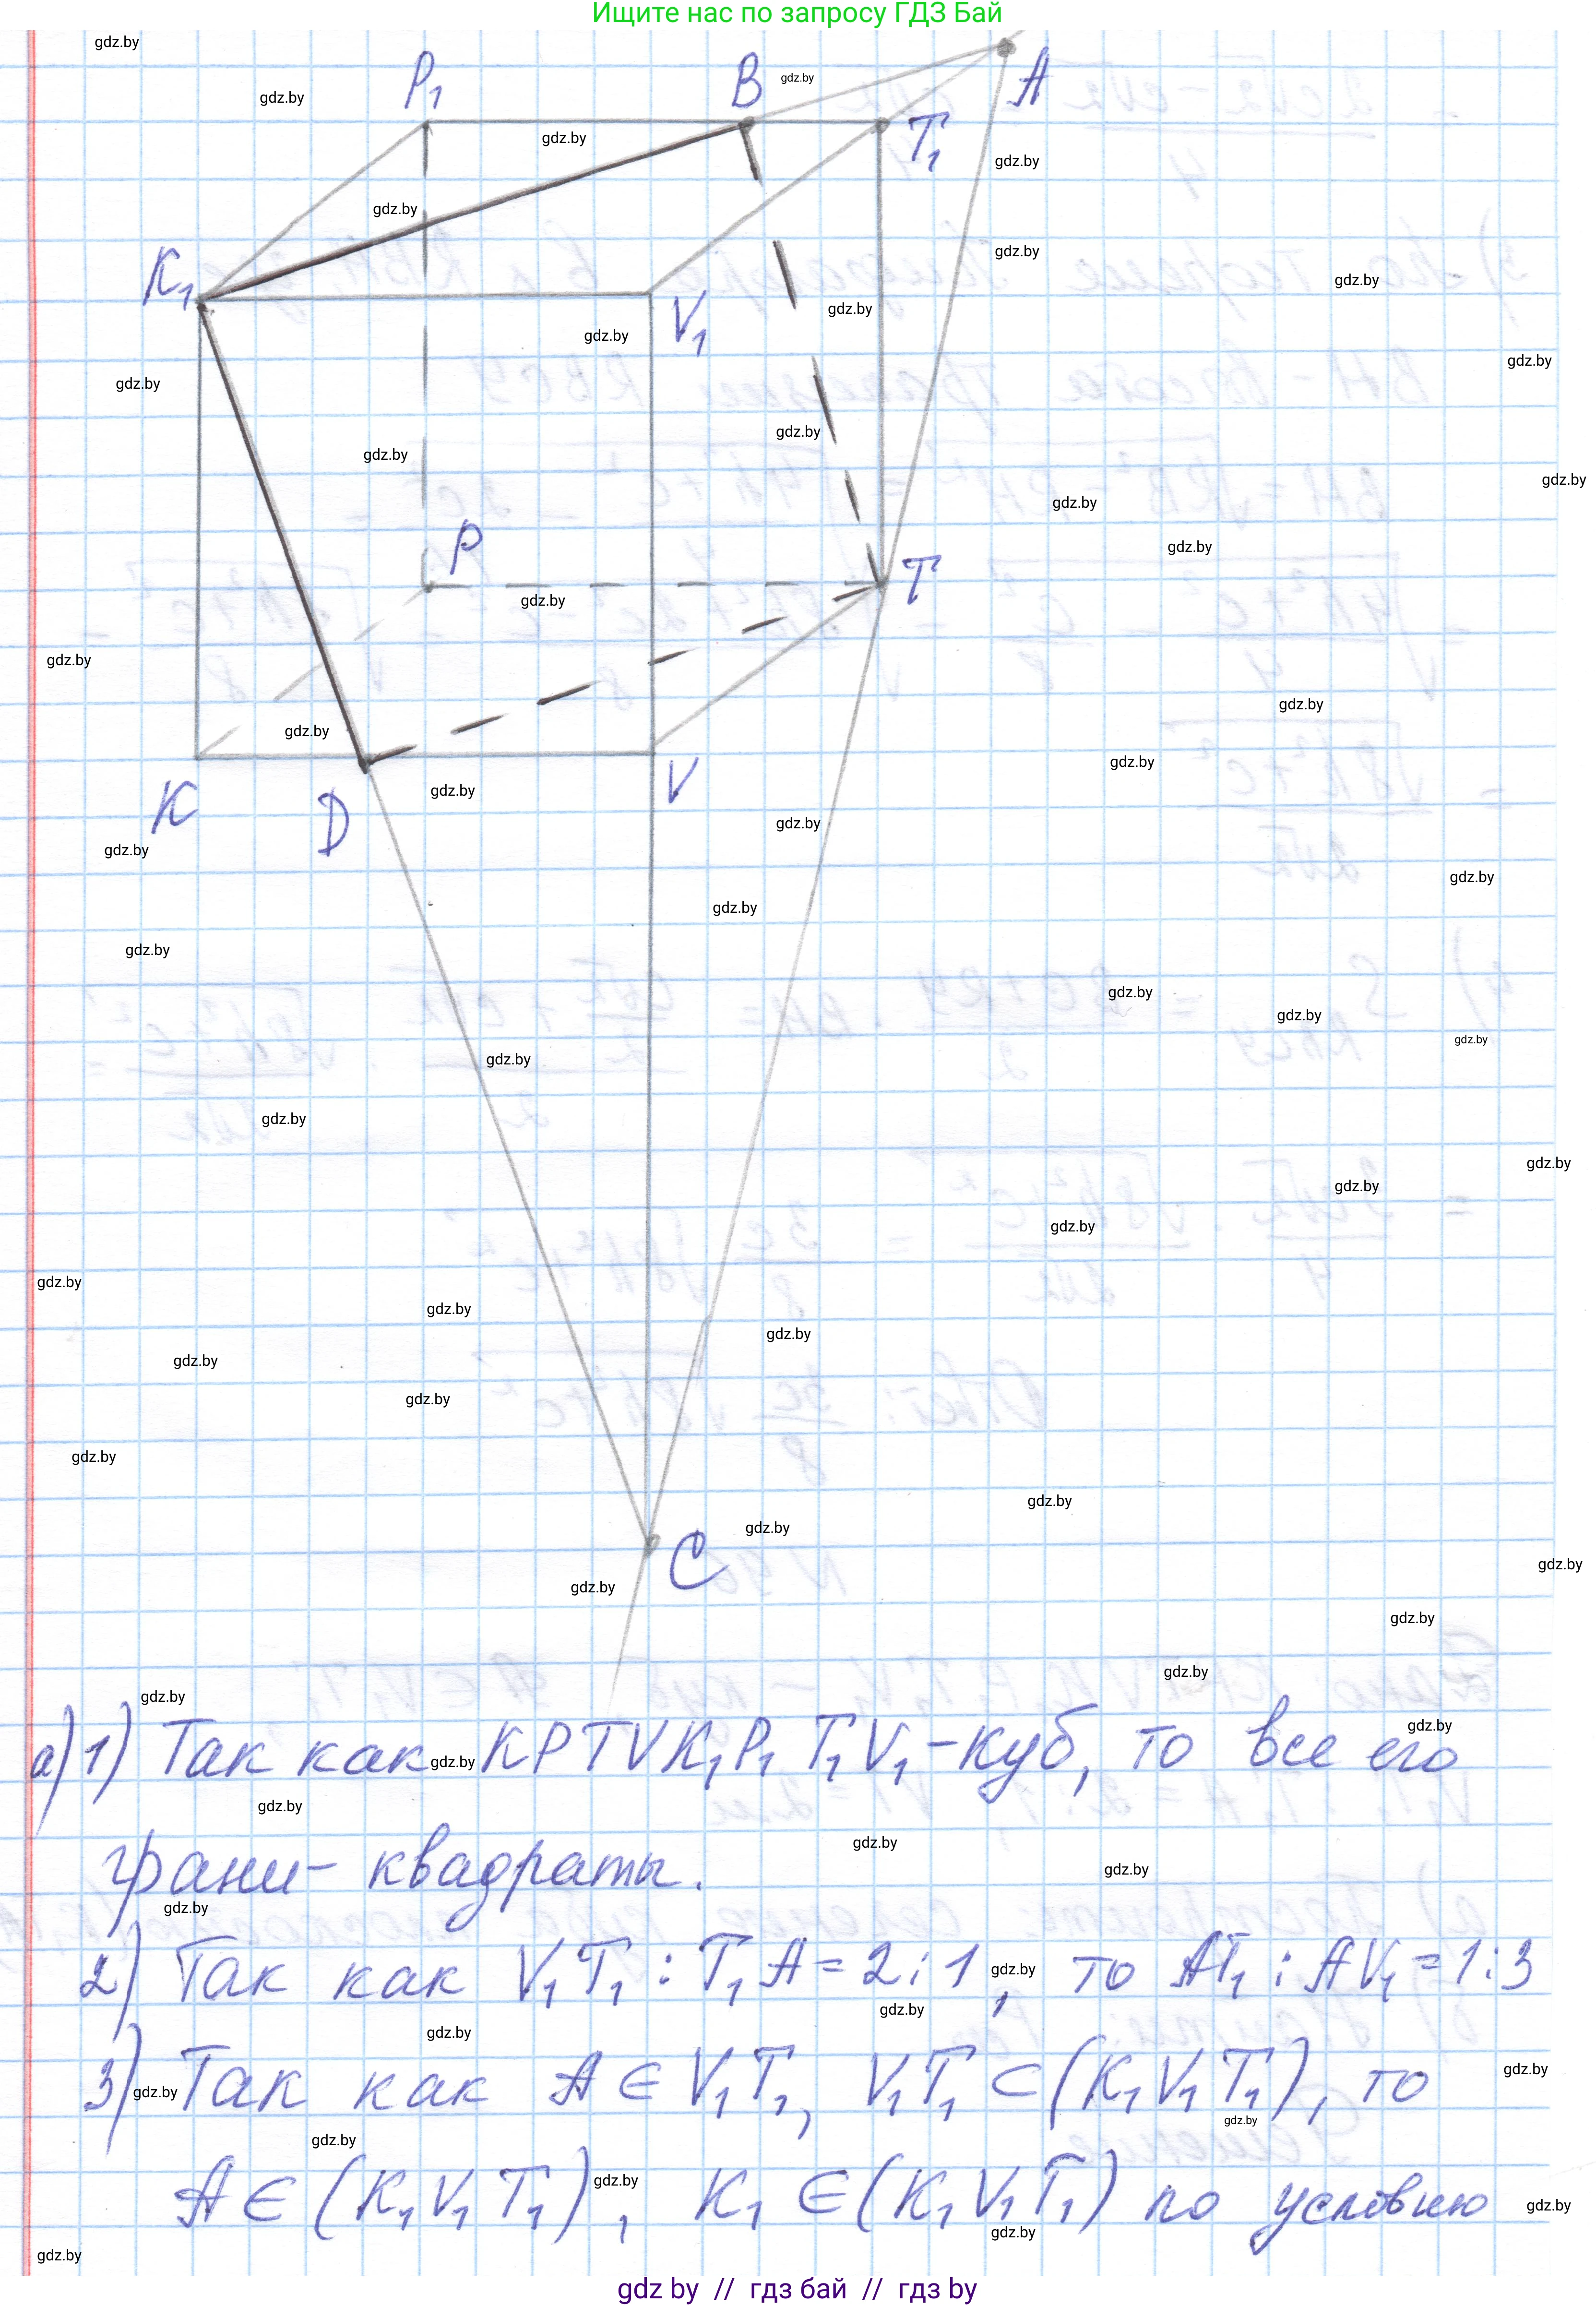 Ищите нас по запросу ГДЗ Бай
A
P₁
B
T₁
K₁
V₁
P
T
K
D
V
C
а) 1) Так как KPTVK₁P₁T₁V₁ - куб, то все его
грани - квадраты.
2) Так как V₁T₁ : T₁A = 2 : 1, то AT₁ : AV₁ = 1:3
3) Так как A ∈ V₁T₁, V₁T₁ ⊂ (K₁V₁T₁), то
A ∈ (K₁V₁T₁), K₁ ∈ (K₁V₁T₁) по условию
gdz by // гдз бай // гдз by
gdz.by